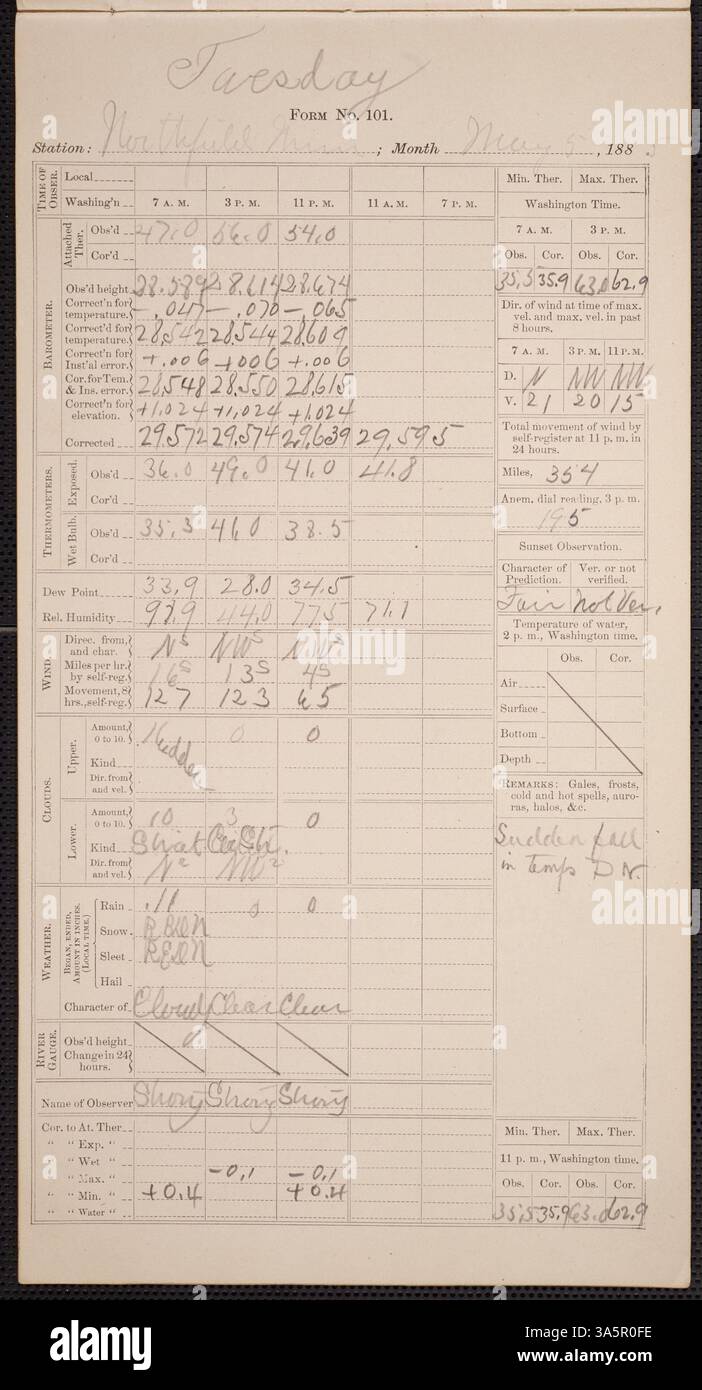 Tuesday
FORM NO. 101.
Station: Northfield Minn ; Month May 5, 1885
TIME OF OBSER. Local
Washing'n 7 A. M. 3 P. M. 11 P. M. 11 A. M. 7 P. M.
Attached Ther. Obs'd 47.0 56.0 54.0
Cor'd
BAROMETER.
Obs'd height 28.589 28.614 28.674
Correct'n for temperature. -.047 -.070 -.065
Correct'd for temperature. 28.542 28.544 28.609
Correct'n for Inst'al error. +.006 +006 +.006
Cor. for Tem. & Ins. error. 28.548 28.550 28.615
Correct'n for elevation. +1.024 +1,024 +1.024
Corrected 29.572 29.574 29.639 29.595
THERMOMETERS.
Exposed. Obs'd 36.0 49.0 41.0 41.8
Cor'd
Wet Bulb. Obs'd 35.3 41.0 38.5
Cor'd
Dew Point 33.9 28.0 34.5
Rel. Humidity 44.0 77.5 71.1
WIND.
Direc. from, and char. N s NW s NW s
Miles per hr. by self-reg. 16 s 13 s 4 s
Movement, 8 hrs., self-reg. 127 123 65
CLOUDS.
Upper. Amount, 0 to 10. Hidden 0 0
Kind
Dir. from and vel.
Lower. Amount, 0 to 10. 10 3 0
Kind Strat
Dir. from and vel. N 2 NW 2
WEATHER.
BEGAN, ENDED, AMOUNT IN INCHES. (LOCAL TIME.)
Rain .11 0 0
Snow R B D N
Sleet R E D N
Hail
Character of Cloudy Clear Clear
RIVER GAUGE.
Obs'd height 0
Change in 24 hours.
Name of Observer Shory Shory Shory
Cor. to At. Ther
" " Exp. "
" " Wet " -0.1 -0.1
" " Max. "
" " Min. " +0.4 +0.4
" " Water "
Min. Ther. Max. Ther.
Washington Time.
7 A. M. 3 P. M.
Obs. Cor. Obs. Cor.
35.5 35.9 63.0 62.9
Dir. of wind at time of max. vel. and max. vel. in past 8 hours.
7 A. M. 3 P.M. 11 P.M.
D. N NW NW
V. 21 20 15
Total movement of wind by self-register at 11 p. m. in 24 hours.
Miles, 354
Anem. dial reading, 3 p. m.
195
Sunset Observation.
Character of Prediction. Ver. or not verified.
Fair Not Ver.
Temperature of water, 2 p. m., Washington time.
Obs. Cor.
Air
Surface
Bottom
Depth
REMARKS: Gales, frosts, cold and hot spells, auroras, halos, &c.
Sudden fall
in temp D N.
Min. Ther. Max. Ther.
11 p. m., Washington time.
Obs. Cor. Obs. Cor.
35.5 35.9 63.0 62.9
alamy
Image ID: 3A5R0FE
www.alamy.com